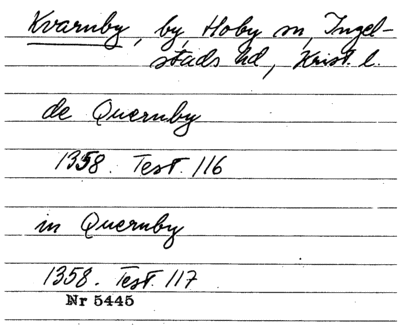 Kvarnby, by, Hoby sn, Ingel-
stads hd, Krist. l.
de Quernby
1358. Test. 116
in Quernby
1358. Test. 117
Nr 5445